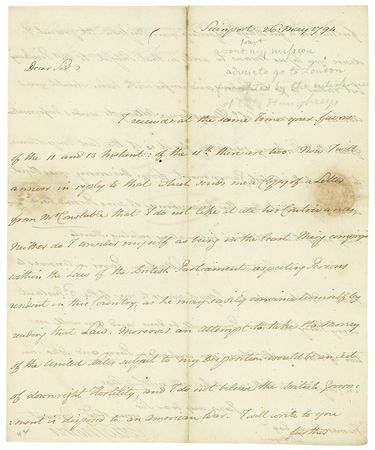 Sainport 26. May 1794
Dear Sir,
part
about my mission
advise to go to London
of Col. Humphreys
I received at the same time your favors
of the 11 and 13 Instant: of the 11th there are two. Now I will
answer in reply to that which sends me a Copy of a Letter
from Mr. Constable that I do not like it at all
Neither do I consider myself as being in the least thing
within the Law of the British Parliament respecting Persons
resident in this Country, as he may easily convince himself by
reading that Law. Moreover an attempt to take the Money
of the United States subject to my disposition would be an Act
of downright Hostility, and I do not believe the British Govern:
:ment is disposed to an american War. I will write to you
further